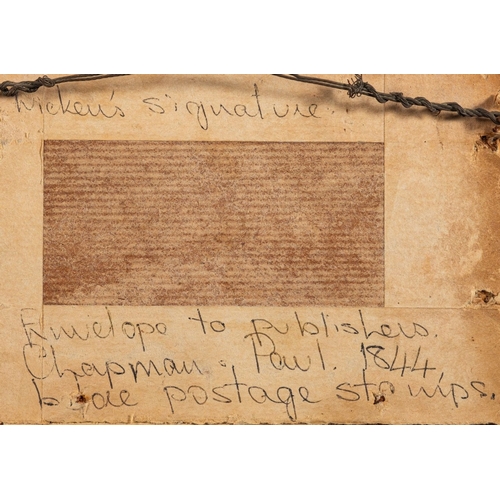 Dicken's signature.
Envelope to publishers.
Chapman. Paul. 1844,
blue postage stamps.